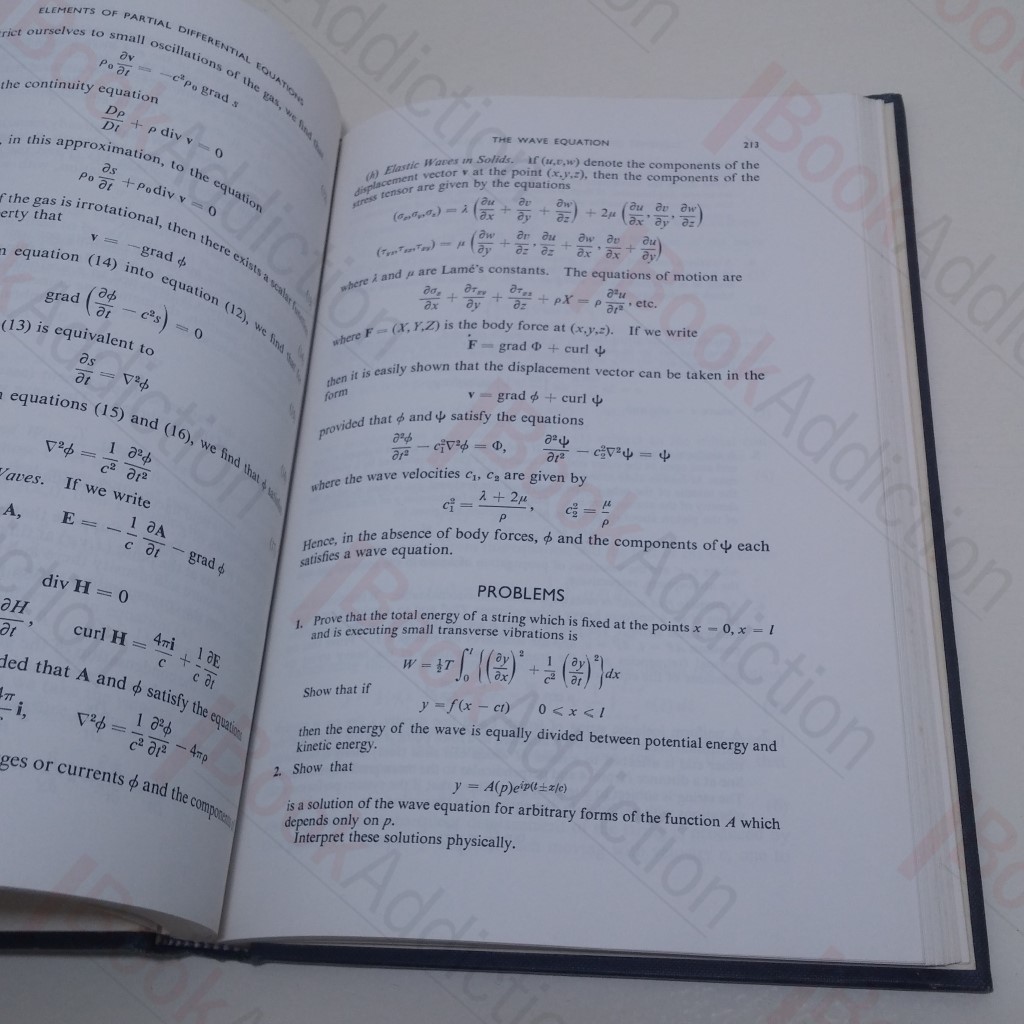 ELEMENTS OF PARTIAL DIFFERENTIAL EQUATIONS
rict ourselves to small oscillations of the gas, we find
ρ₀ ∂v/∂t = −c²ρ₀ grad s
the continuity equation
Dρ/Dt + ρ div v = 0
, in this approximation, to the equation
ρ₀ ∂s/∂t + ρ₀ div v = 0
f the gas is irrotational, then there exists a scalar
erty that
v = −grad ϕ
equation (14) into equation (12), we find
grad (∂ϕ/∂t − c²s) = 0
(13) is equivalent to
∂s/∂t = ∇²ϕ
equations (15) and (16), we find that ϕ
∇²ϕ = 1/c² ∂²ϕ/∂t²
Waves. If we write
A, E = − 1/c ∂A/∂t − grad ϕ
div H = 0
∂H/∂t, curl H = 4πi/c + 1/c ∂E/∂t
ded that A and ϕ satisfy the equations
4π/c i, ∇²ϕ = 1/c² ∂²ϕ/∂t² − 4πρ
ges or currents ϕ and the components
THE WAVE EQUATION 213
(h) Elastic Waves in Solids. If (u,v,w) denote the components of the
displacement vector v at the point (x,y,z), then the components of the
stress tensor are given by the equations
(σₓ,σᵧ,σz) = λ (∂u/∂x + ∂v/∂y + ∂w/∂z) + 2μ (∂u/∂x, ∂v/∂y, ∂w/∂z)
(τyz,τzx,τxy) = μ (∂w/∂y + ∂v/∂z, ∂u/∂z + ∂w/∂x, ∂v/∂x + ∂u/∂y)
where λ and μ are Lamé's constants. The equations of motion are
∂σₓ/∂x + ∂τxy/∂y + ∂τxz/∂z + ρX = ρ ∂²u/∂t², etc.
where F = (X,Y,Z) is the body force at (x,y,z). If we write
F = grad Φ + curl ψ
then it is easily shown that the displacement vector can be taken in the
form
v = grad ϕ + curl ψ
provided that ϕ and ψ satisfy the equations
∂²ϕ/∂t² − c₁²∇²ϕ = Φ, ∂²ψ/∂t² − c₂²∇²ψ = ψ
where the wave velocities c₁, c₂ are given by
c₁² = (λ + 2μ)/ρ, c₂² = μ/ρ
Hence, in the absence of body forces, ϕ and the components of ψ each
satisfies a wave equation.
PROBLEMS
1. Prove that the total energy of a string which is fixed at the points x = 0, x = l
and is executing small transverse vibrations is
W = ½T ∫₀ˡ {(∂y/∂x)² + 1/c² (∂y/∂t)²} dx
Show that if
y = f(x − ct) 0 < x < l
then the energy of the wave is equally divided between potential energy and
kinetic energy.
2. Show that
y = A(p)e^{ip(t±x/c)}
is a solution of the wave equation for arbitrary forms of the function A which
depends only on p.
Interpret these solutions physically.
BookAddiction